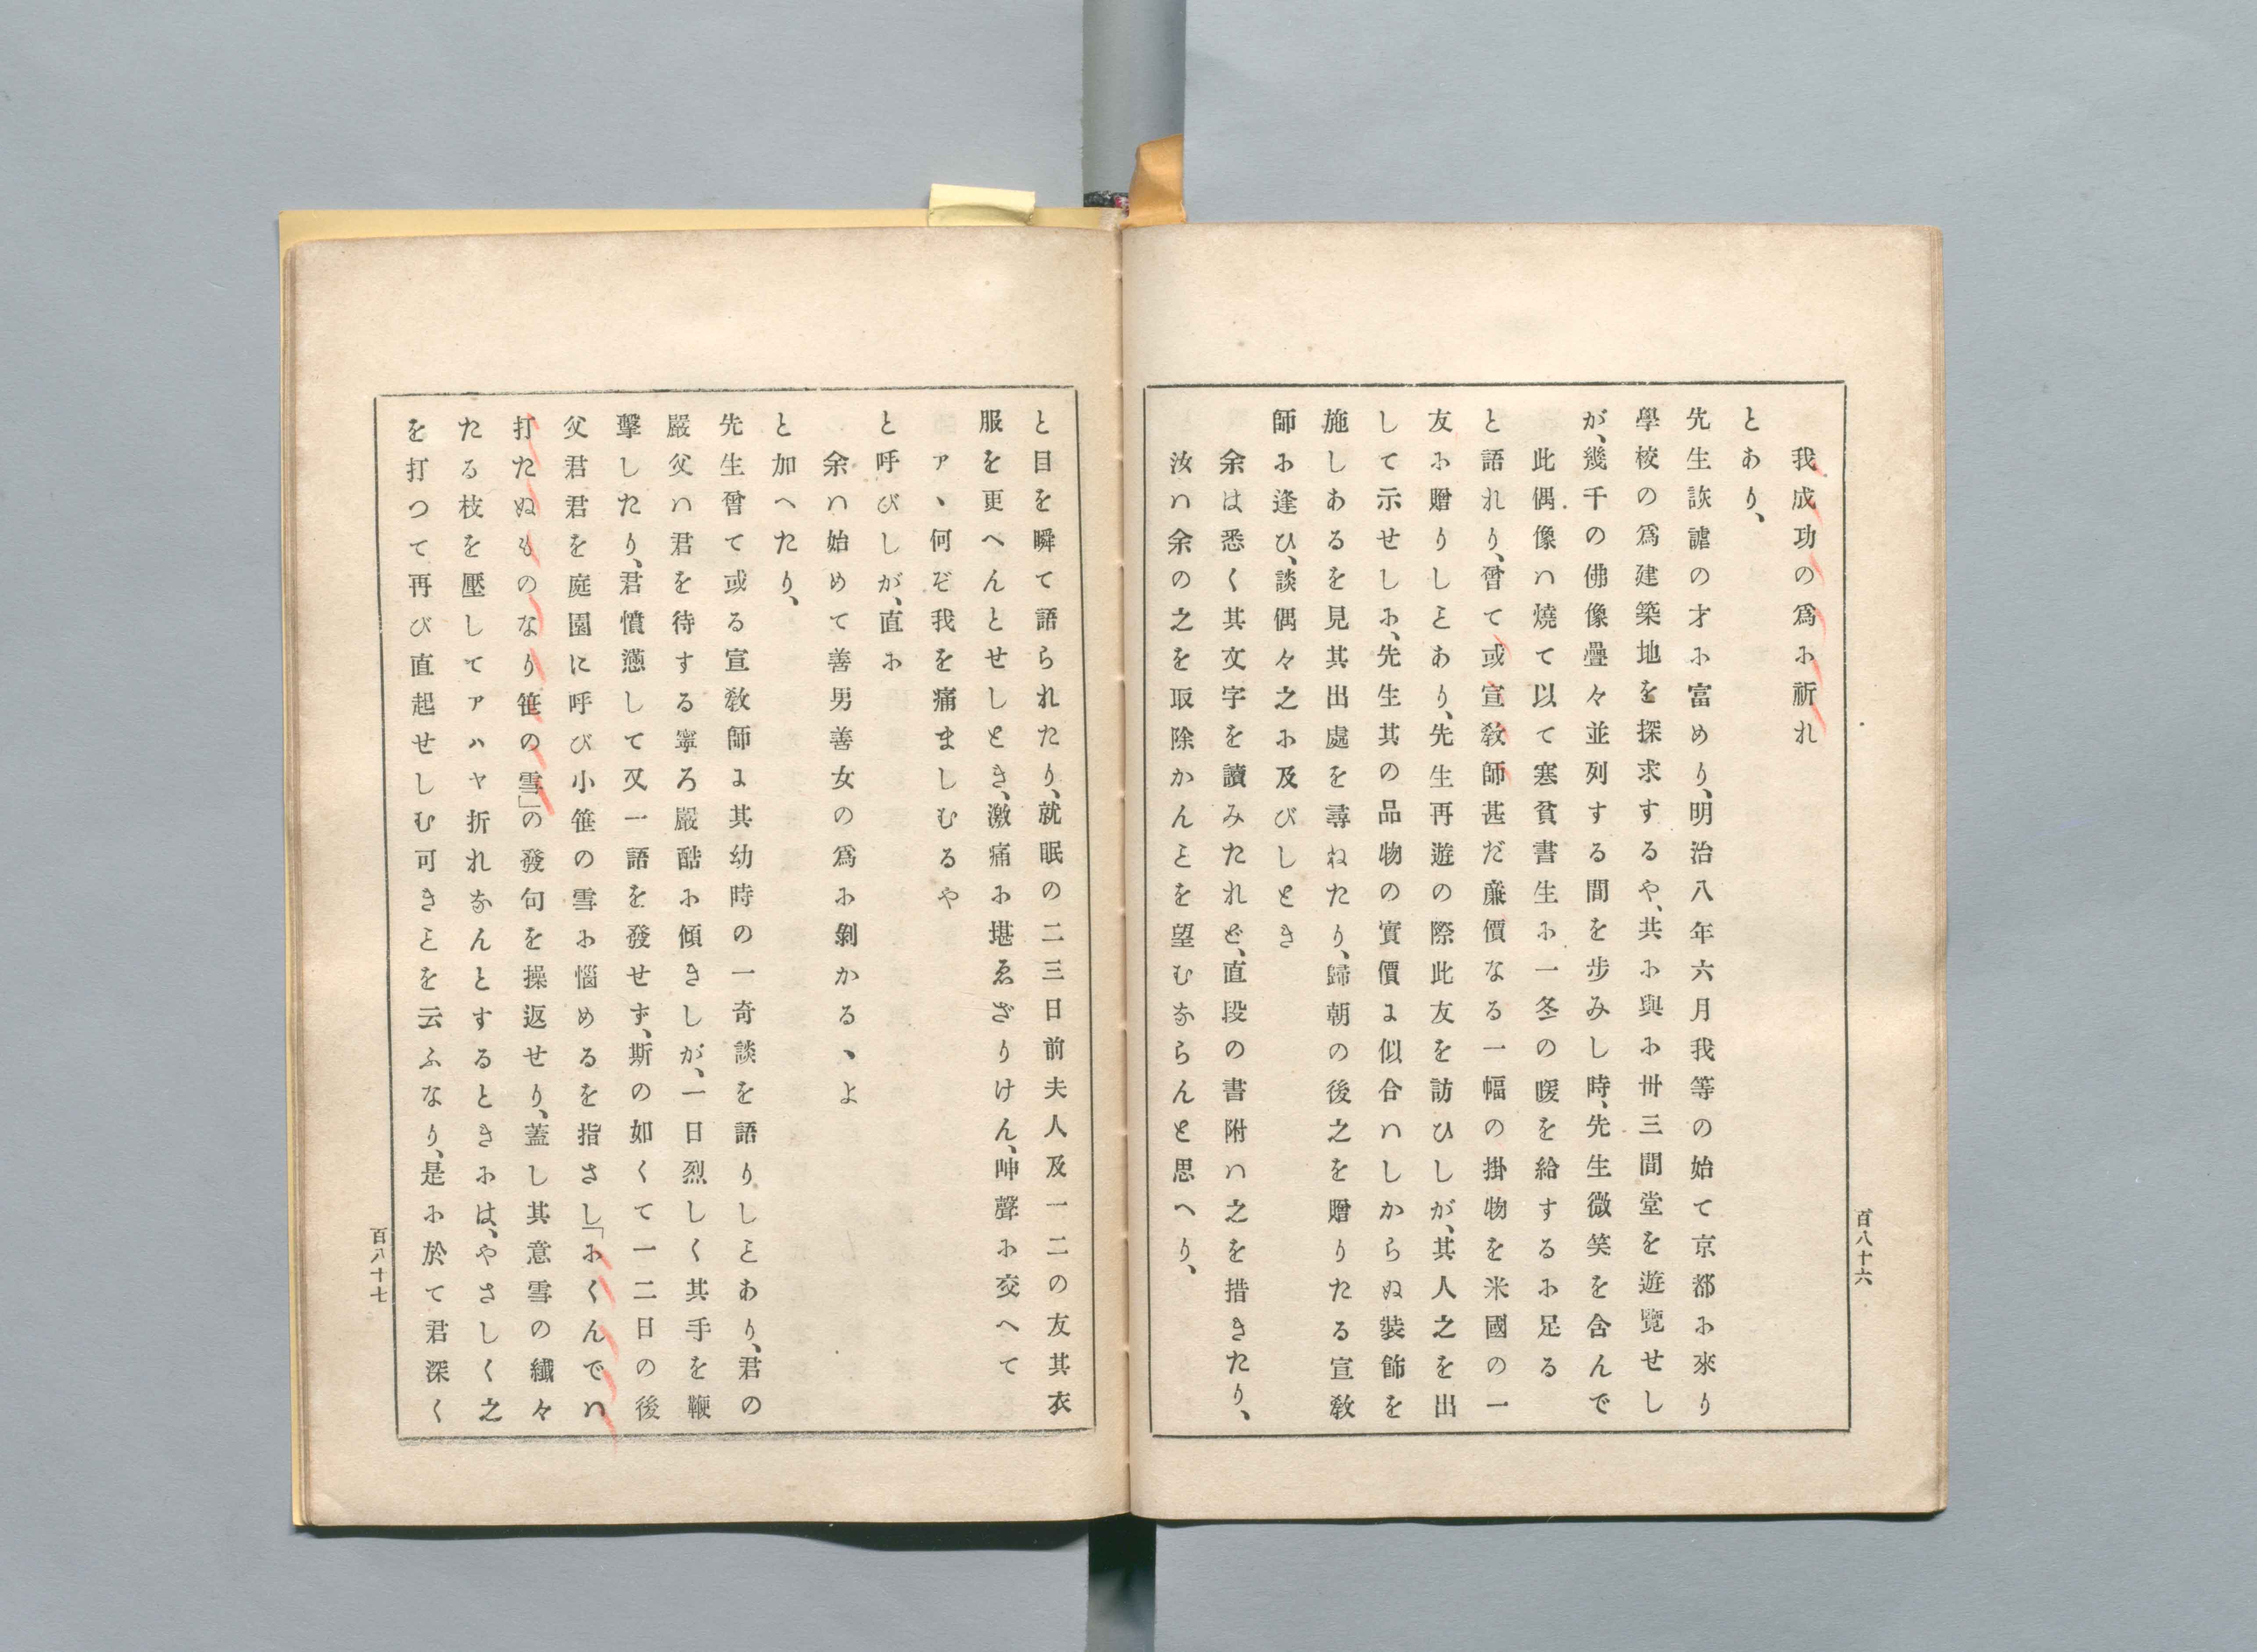 我成功の爲に祈れ
とあり、
先生詼謔の才に富めり、明治八年六月我等の始て京都に來り
學校の爲建築地を探求するや、共に與に卅三間堂を遊覽せし
が、幾千の佛像疊々並列する間を歩みし時、先生微笑を含んで
此偶像ハ燒て以て寒貧書生に一冬の暖を給するに足る
と語れり、曾て或宣敎師甚だ廉價なる一幅の掛物を米國の一
友に贈りしとあり、先生再遊の際此友を訪ひしが、其人之を出
して示せしに、先生其の品物の實價よ似合ハしからぬ裝飾を
施しあるを見其出處を尋ねたり、歸朝の後之を贈りたる宣敎
師に逢ひ、談偶々之に及びしとき
余は悉く其文字を讀みたれど、直段の書附ハ之を措きたり、
汝ハ余の之を取除かんとを望むならんと思へり、
百八十六
と目を瞬て語られたり、就眠の二三日前夫人及一二の友其衣
服を更へんとせしとき、激痛に堪ゑざりけん、呻聲に交へて
アヽ何ぞ我を痛ましむるや
と呼びしが、直に
余ハ始めて善男善女の爲に剝かるヽよ
と加へたり、
先生曾て或る宣敎師よ其幼時の一奇談を語りしとあり、君の
嚴父ハ君を待する寧ろ嚴酷に傾きしが、一日烈しく其手を鞭
擊したり、君憤懣して又一語を發せず、斯の如くて一二日の後
父君君を庭園に呼び小笹の雪に惱めるを指さし「にくんでハ
打たぬものなり笹の雪」の發句を操返せり、蓋し其意雪の纖々
たる枝を壓してアハヤ折れなんとするときには、やさしく之
を打つて再び直起せしむ可きとを云ふなり、是に於て君深く
百八十七